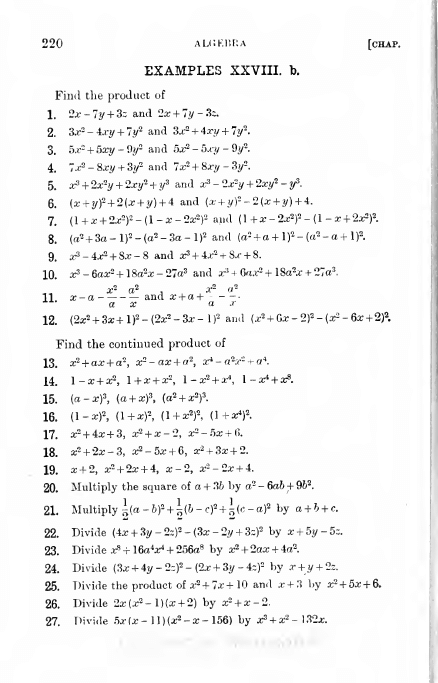 220 ALGEBRA [CHAP.
EXAMPLES XXVIII. b.
Find the product of
1. 2x − 7y + 3z and 2x + 7y − 3z.
2. 3x² − 4xy + 7y² and 3x² + 4xy + 7y².
3. 5x² + 5xy − 9y² and 5x² − 5xy − 9y².
4. 7x² − 8xy + 3y² and 7x² + 8xy − 3y².
5. x³ + 2x²y + 2xy² + y³ and x³ − 2x²y + 2xy² − y³.
6. (x + y)² + 2(x + y) + 4 and (x + y)² − 2(x + y) + 4.
7. (1 + x + 2x²)² − (1 − x − 2x²)² and (1 + x − 2x²)² − (1 − x + 2x²)².
8. (a² + 3a − 1)² − (a² − 3a − 1)² and (a² + a + 1)² − (a² − a + 1)².
9. x³ − 4x² + 8x − 8 and x³ + 4x² + 8x + 8.
10. x³ − 6ax² + 18a²x − 27a³ and x³ + 6ax² + 18a²x + 27a³.
11. x − a − x²/a − a²/x and x + a + x²/a − a²/x.
12. (2x² + 3x + 1)² − (2x² − 3x − 1)² and (x² + 6x − 2)² − (x² − 6x + 2)².
Find the continued product of
13. x² + ax + a², x² − ax + a², x⁴ − a²x² + a⁴.
14. 1 − x + x², 1 + x + x², 1 − x² + x⁴, 1 − x⁴ + x⁸.
15. (a − x)³, (a + x)³, (a² + x²)³.
16. (1 − x)², (1 + x)², (1 + x²)², (1 + x⁴)².
17. x² + 4x + 3, x² + x − 2, x² − 5x + 6.
18. x² + 2x − 3, x² − 5x + 6, x² + 3x + 2.
19. x + 2, x² + 2x + 4, x − 2, x² − 2x + 4.
20. Multiply the square of a + 3b by a² − 6ab + 9b².
21. Multiply 1/2(a − b)² + 1/2(b − c)² + 1/2(c − a)² by a + b + c.
22. Divide (4x + 3y − 2z)² − (3x − 2y + 3z)² by x + 5y − 5z.
23. Divide x⁸ + 16a⁴x⁴ + 256a⁸ by x² + 2ax + 4a².
24. Divide (3x + 4y − 2z)² − (2x + 3y − 4z)² by x + y + 2z.
25. Divide the product of x² + 7x + 10 and x + 3 by x² + 5x + 6.
26. Divide 2x(x² − 1)(x + 2) by x² + x − 2.
27. Divide 5x(x − 11)(x² − x − 156) by x³ + x² − 132x.